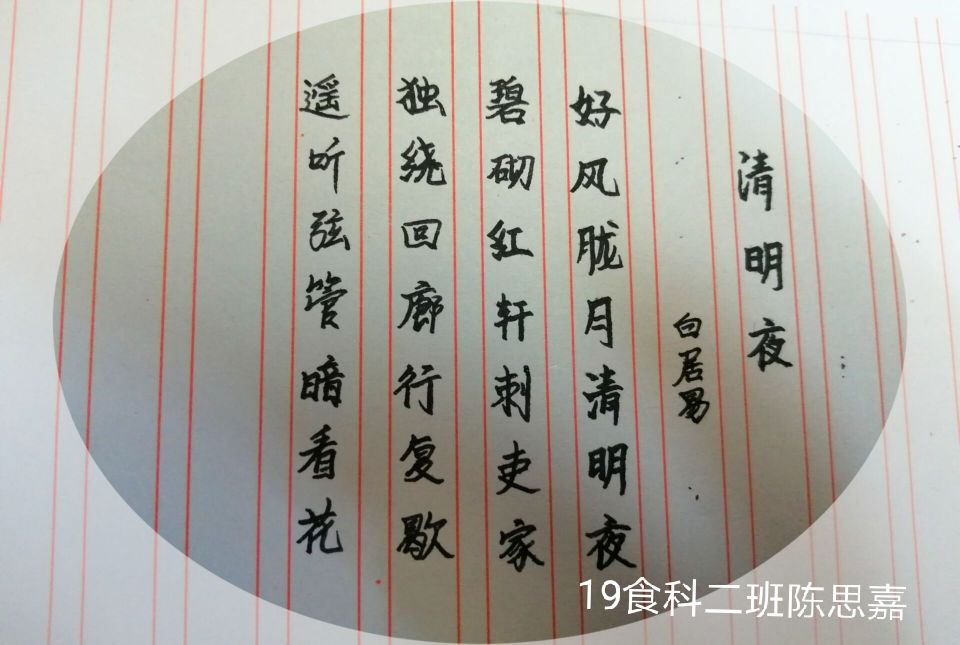 清明夜
白居易
好风胧月清明夜
碧砌红轩刺吏家
独绕回廊行复歇
遥听弦管暗看花
19食科二班陈思嘉